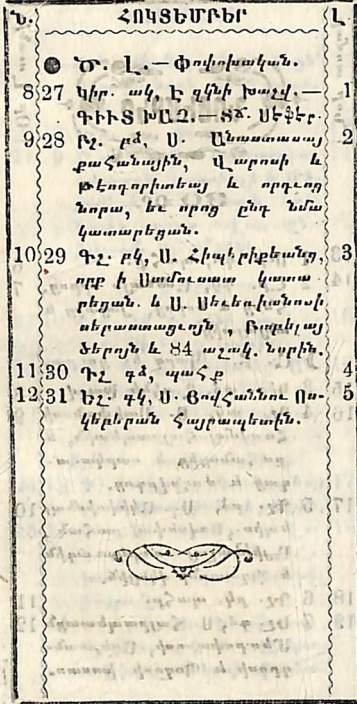 Ն. ՀՈԿՏԵՄԲԵՐ Լ.
Ծ. Լ.—Փոփոխական.
8 27 Կիր. ակ, Է զկնի խաչվ.— 1
ԳԻՒՏ ԽԱՉ.—ՏՃ. ՍԵՖԷՐ.
9 28 Բշ. բձ, Ս. Անաստասայ 2
քահանային, Վարոսի և
Թէոդորիտեայ և որդւոց
նորա, եւ որոց ընդ նմա
կատարեցան.
10 29 Գշ. բկ, Ս. Հիպերիքեանց, 3
որք ի Սամուսատ կատա
րեցան. և Ս. Սեւերիանոսի
սերաստացւոյն , Բաբելայ
ծերոյն և 84 աշակ. նորին.
11 30 Դշ գձ, պահք 4
12 31 Եշ. գկ, Ս. Յովհաննու Ոս- 5
կեբերան Հայրապետին.